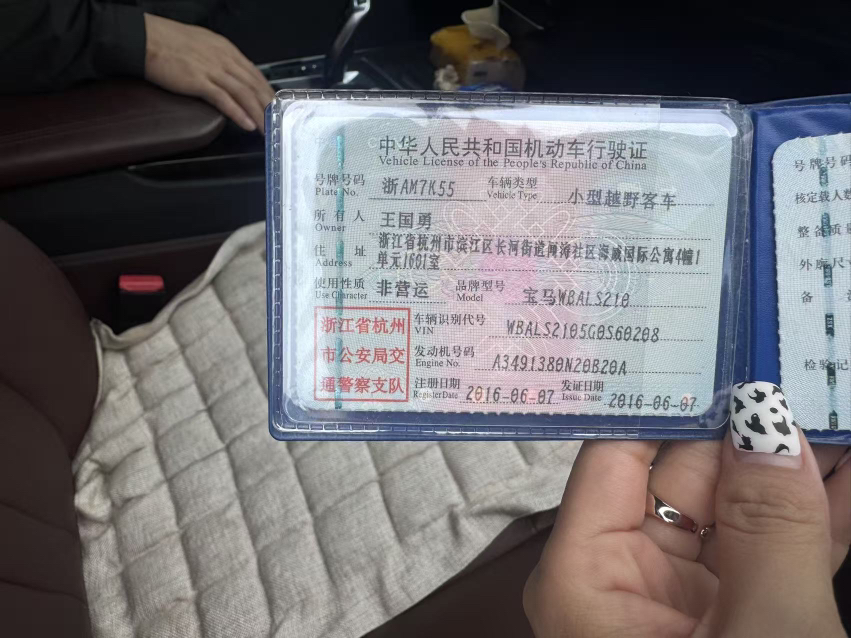 中华人民共和国机动车行驶证
Vehicle License of the People's Republic of China
号牌号码 浙AM7K55 车辆类型 小型越野客车
Plate No. Vehicle Type
所有人 王国勇
Owner
住址 浙江省杭州市滨江区长河街道闻涛社区海威国际公寓4幢1
Address 单元1601室
使用性质 非营运 品牌型号 宝马WBALS210
Use Character Model
浙江省杭州
市公安局交
通警察支队
车辆识别代号 WBALS2105G0S60208
VIN
发动机号码 A3491380N20B20A
Engine No.
注册日期 2016-06-07 发证日期 2016-06-07
Register Date Issue Date
号牌号码
核定载人数
整备质量
外廓尺
备
检验记